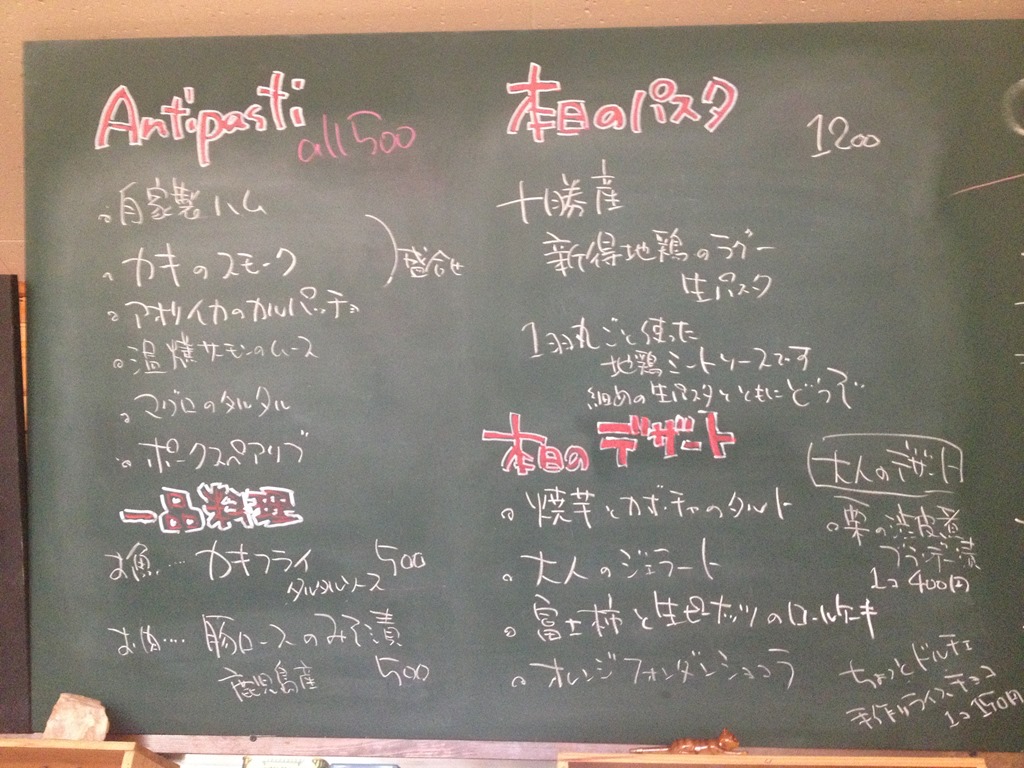 Antipasti
all 500
自家製ハム
カキのスモーク
盛合せ
アオリイカのカルパッチョ
温燻サーモンのムース
マグロのタルタル
ポークスペアリブ
一品料理
お魚‥‥ カキフライ 500
タルタルソース
お肉‥‥ 豚ロースのみそ漬
鹿児島産 500
本日のパスタ
1200
十勝産
新得地鶏のラグー
生パスタ
1羽丸ごと使った
地鶏ミートソースです
細めの生パスタとともにどうぞ
本日のデザート
焼芋とカボチャのタルト
大人のジェラート
富士柿と生ロールケーキ
オレンジフォンダンショコラ
大人のデザート
栗の渋皮煮
ブランデー漬
1コ 400円
ちょっとドルチェ
手作りライスチョコ
1コ 150円